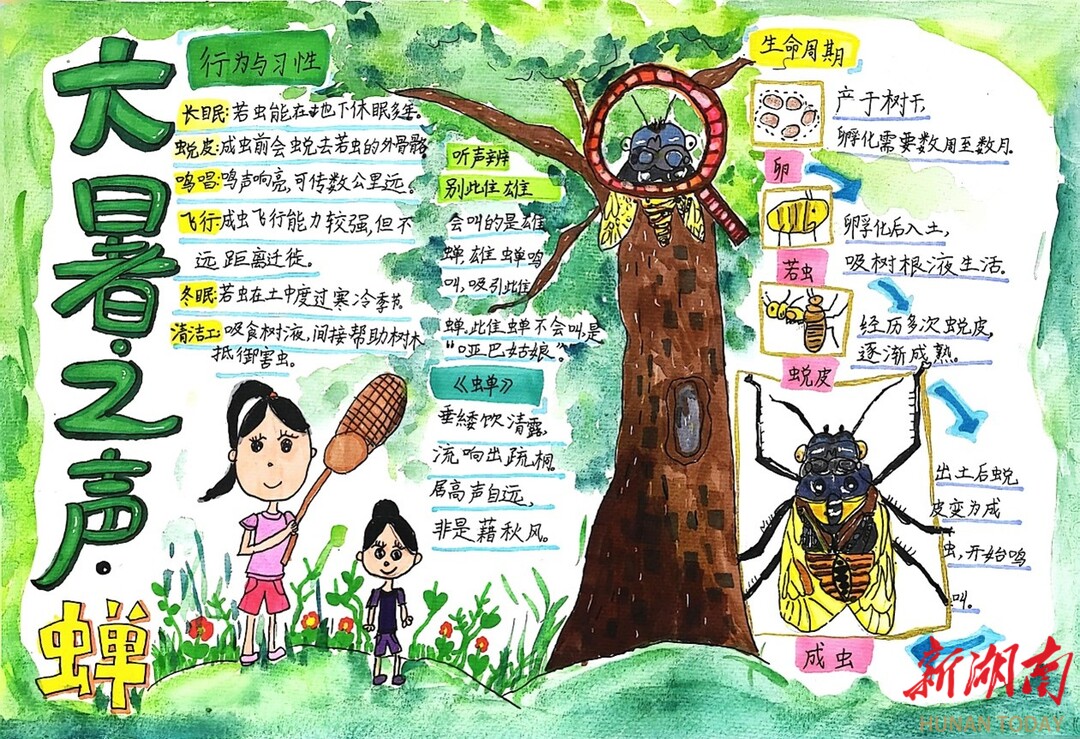 大暑·之声·
蝉
行为与习性
长眠:若虫能在地下休眠多年。
蜕皮:成虫前会蜕去若虫的外骨骼
鸣唱:鸣声响亮,可传数公里远。
飞行:成虫飞行能力较强,但不
远距离迁徙。
冬眠:若虫在土中度过寒冷季节
清洁工:吸食树液,间接帮助树木
抵御害虫。
听声辨
别雌雄
会叫的是雄
蝉雄蝉鸣
叫,吸引雌
蝉,雌蝉不会叫,是
“哑巴姑娘”
《蝉》
垂緌饮清露,
流响出疏桐。
居高声自远,
非是藉秋风。
生命周期
产于树干
孵化需要数周至数月。
卵
孵化后入土,
吸树根液生活。
若虫
经历多次蜕皮,
逐渐成熟。
蜕皮
出土后蜕
皮变为成
虫,开始鸣
叫。
成虫
新湖南
HUNAN TODAY